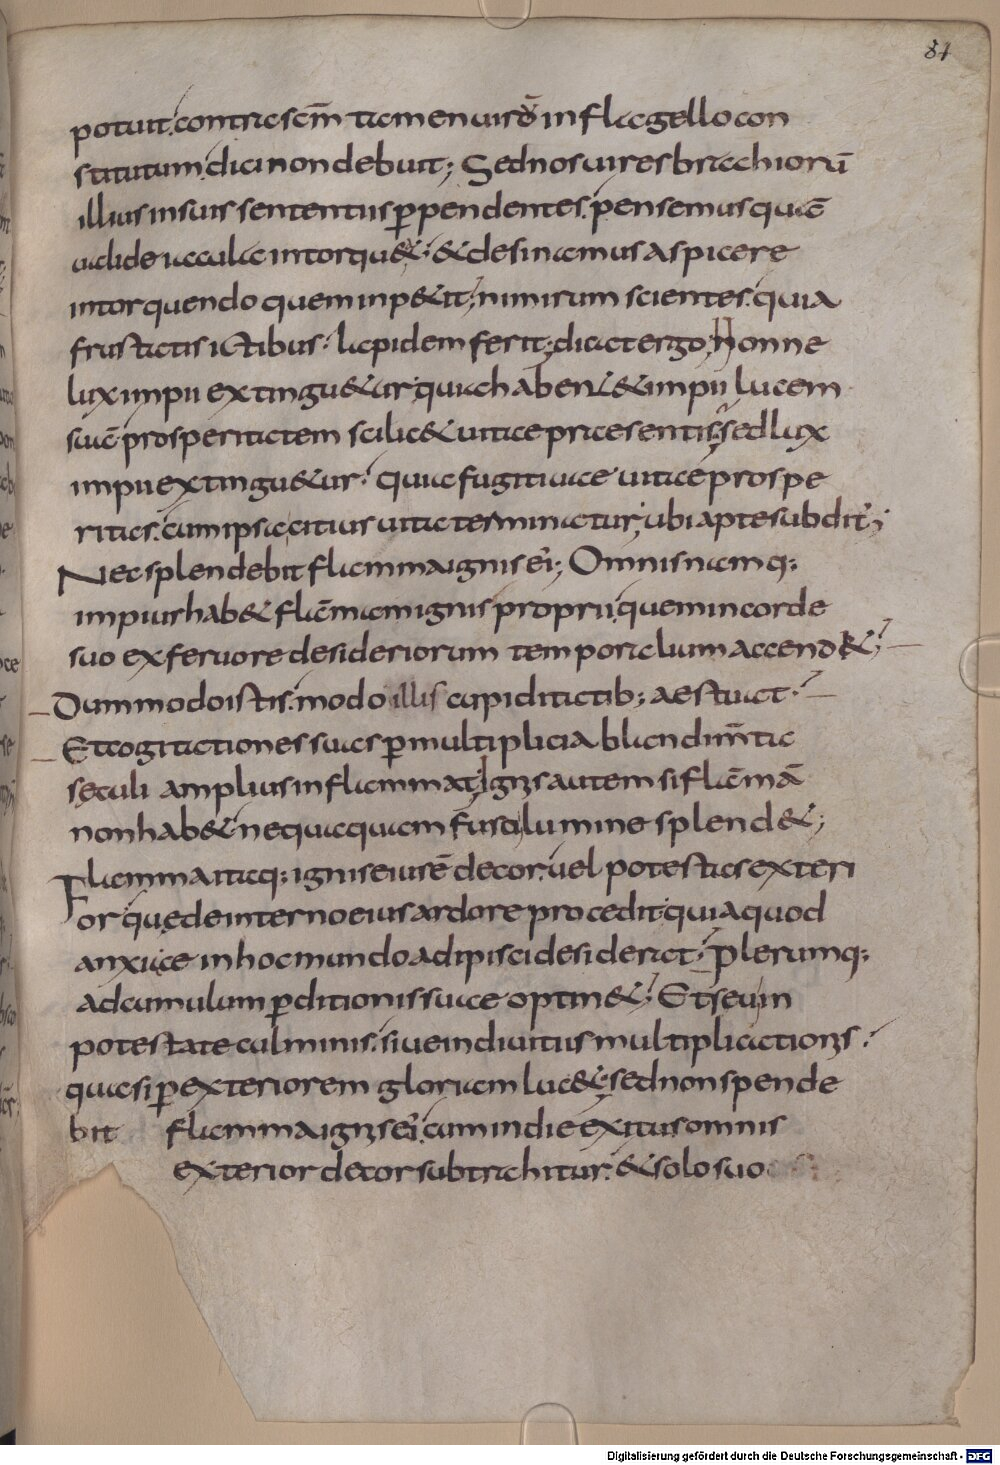 81
potuit. contra sēm̄ tamen uirō in flagello con
stitutum. dici non debuit; Sed nos uires brachiorū
illius in suis sententiis ꝑpendentes. pensemus quā
ualide iacula intorqu&; & desinamus aspicere
intorquendo quem inp&it; nimirum scientes. quia
frustatis ictibus. lapidem ferit; dicat ergo, Nonne
lux impii extingu&ur; quia haben̄t & impii lucem
suā prosperitatem scilic& uitae praesentis; sed lux
impii extingu&ur. quia fugitiuae uitae prospe
ritas. cum ipsa citius uita terminatur; ubi apte subdit̄;
Nec splendebit flamma ignis ei; Omnis namq;
impius hab& flāmam ignis proprii, quem in corde
suo ex feruore desideriorum temporalium accend&;
Dum modo istis. modo illis cupiditatib; aestuat.
Et cogitationes suas ꝑ multiplicia blandim̄ta
sęculi amplius inflammat; Ignis autem si flāmā
non hab& nequaquam fuso lumine splend&;
Flamma itaq; ignis eius ē decor. uel potestas exteri
or quę de interno eius ardore procedit; quia quod
anxiae in hoc mundo adipisci desiderat. Plerumq;
ad cumulum ꝑditionis suae optin&; Et seu in
potestate culminis. siue in diuitiis multiplicationis.
quasi ꝑ exteriorem gloriam luc&; sed non spende
bit flamma ignis ei. cum in die exitus omnis
exterior decor subtrahitur. & solo suo
Digitalisierung gefördert durch die Deutsche Forschungsgemeinschaft - DFG